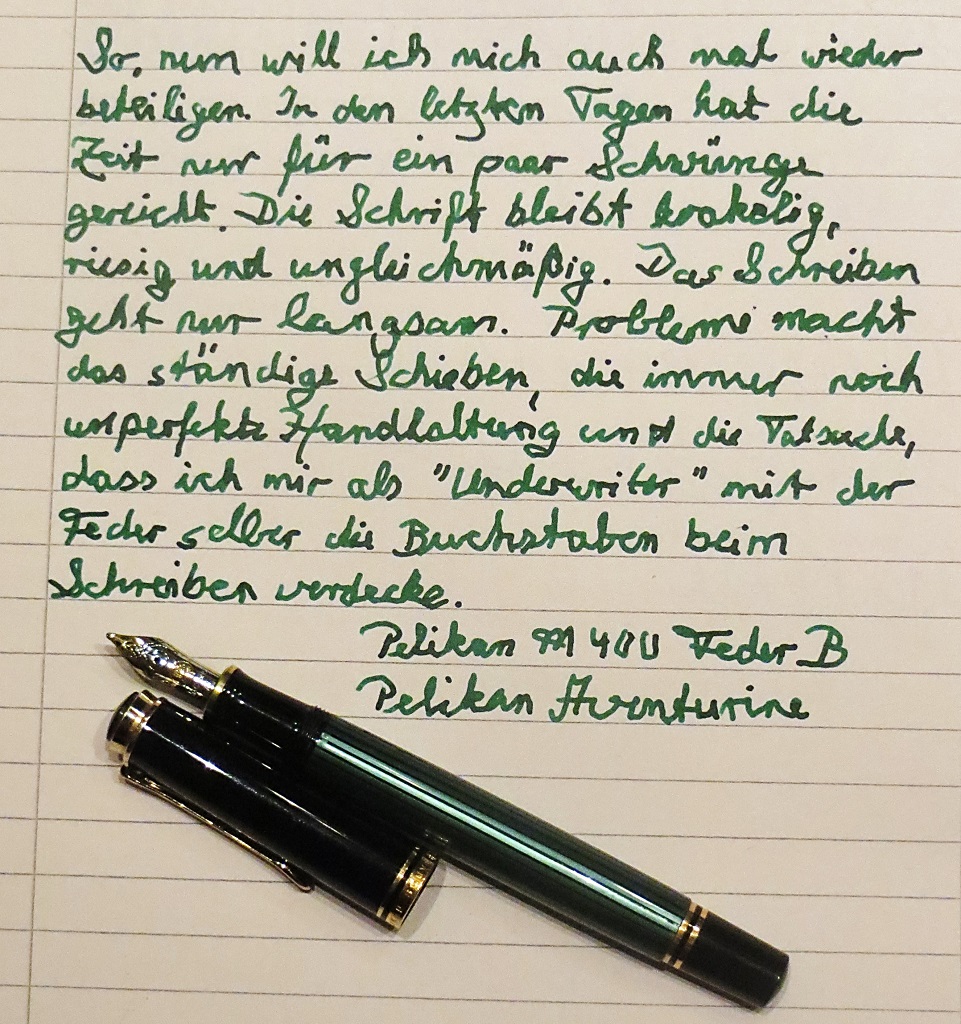 So, nun will ich mich auch mal wieder
beteiligen. In den letzten Tagen hat die
Zeit nur für ein paar Schwünge
gereicht. Die Schrift bleibt krakelig,
riesig und ungleichmäßig. Das Schreiben
geht nur langsam. Probleme macht
das ständige Schieben, die immer noch
unperfekte Handhaltung und die Tatsache,
dass ich mir als "Underwriter" mit der
Feder selber die Buchstaben beim
Schreiben verdecke.
Pelikan M 400 Feder B
Pelikan Aventurine